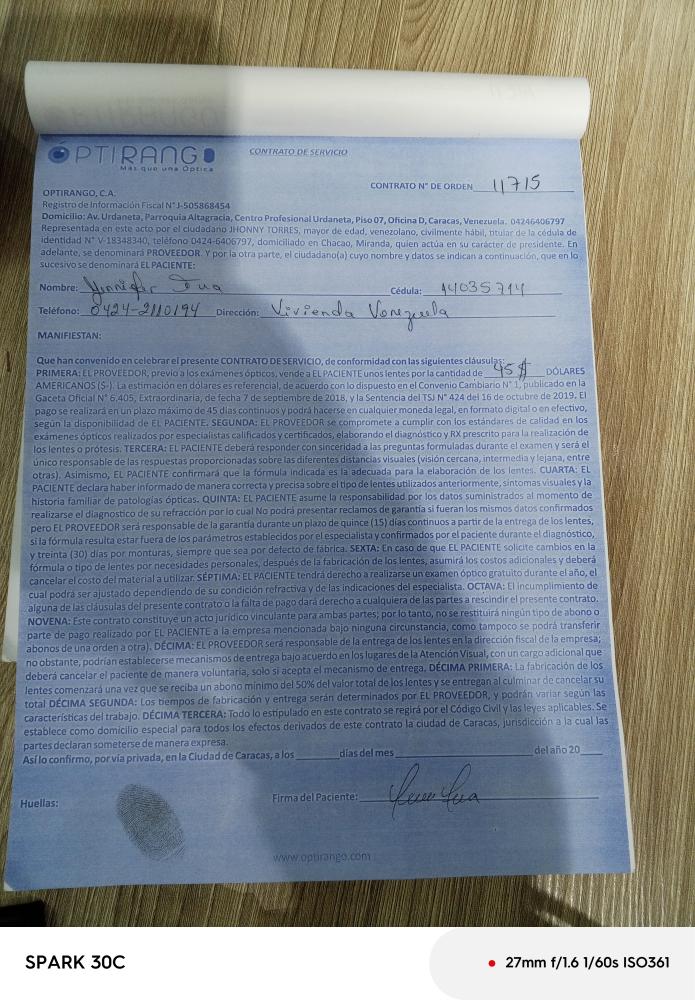 ÓPTIRANGO
Más que una Óptica
CONTRATO DE SERVICIO
CONTRATO N° DE ORDEN 11715
OPTIRANGO, C.A.
Registro de Información Fiscal N° J-505868454
Domicilio: Av. Urdaneta, Parroquia Altagracia, Centro Profesional Urdaneta, Piso 07, Oficina D, Caracas, Venezuela. 04246406797
Representada en este acto por el ciudadano JHONNY TORRES, mayor de edad, venezolano, civilmente hábil, titular de la cédula de
identidad N° V-18348340, teléfono 0424-6406797, domiciliado en Chacao, Miranda, quien actúa en su carácter de presidente. En
adelante, se denominará PROVEEDOR. Y por la otra parte, el ciudadano(a) cuyo nombre y datos se indican a continuación, que en lo
sucesivo se denominará EL PACIENTE:
Nombre: Yennifer Cédula: 14035714
Teléfono: 0424-2110194 Dirección: Vivienda Venezuela
MANIFIESTAN:
Que han convenido en celebrar el presente CONTRATO DE SERVICIO, de conformidad con las siguientes cláusulas:
PRIMERA: EL PROVEEDOR, previo a los exámenes ópticos, vende a EL PACIENTE unos lentes por la cantidad de 45 $ DÓLARES
AMERICANOS (S-). La estimación en dólares es referencial, de acuerdo con lo dispuesto en el Convenio Cambiario N° 1, publicado en la
Gaceta Oficial N° 6.405, Extraordinaria, de fecha 7 de septiembre de 2018, y la Sentencia del TSJ N° 424 del 16 de octubre de 2019. El
pago se realizará en un plazo máximo de 45 días continuos y podrá hacerse en cualquier moneda legal, en formato digital o en efectivo,
según la disponibilidad de EL PACIENTE. SEGUNDA: EL PROVEEDOR se compromete a cumplir con los estándares de calidad en los
exámenes ópticos realizados por especialistas calificados y certificados, elaborando el diagnóstico y RX prescrito para la realización de
los lentes o prótesis. TERCERA: EL PACIENTE deberá responder con sinceridad a las preguntas formuladas durante el examen y será el
único responsable de las respuestas proporcionadas sobre las diferentes distancias visuales (visión cercana, intermedia y lejana, entre
otras). Asimismo, EL PACIENTE confirmará que la fórmula indicada es la adecuada para la elaboración de los lentes. CUARTA: EL
PACIENTE declara haber informado de manera correcta y precisa sobre el tipo de lentes utilizados anteriormente, síntomas visuales y la
historia familiar de patologías ópticas. QUINTA: EL PACIENTE asume la responsabilidad por los datos suministrados al momento de
realizarse el diagnostico de su refracción por lo cual No podrá presentar reclamos de garantía si fueran los mismos datos confirmados
pero EL PROVEEDOR será responsable de la garantía durante un plazo de quince (15) días continuos a partir de la entrega de los lentes,
si la fórmula resulta estar fuera de los parámetros establecidos por el especialista y confirmados por el paciente durante el diagnóstico,
y treinta (30) días por monturas, siempre que sea por defecto de fábrica. SEXTA: En caso de que EL PACIENTE solicite cambios en la
fórmula o tipo de lentes por necesidades personales, después de la fabricación de los lentes, asumirá los costos adicionales y deberá
cancelar el costo del material a utilizar. SÉPTIMA: EL PACIENTE tendrá derecho a realizarse un examen óptico gratuito durante el año, el
cual podrá ser ajustado dependiendo de su condición refractiva y de las indicaciones del especialista. OCTAVA: El incumplimiento de
alguna de las cláusulas del presente contrato o la falta de pago dará derecho a cualquiera de las partes a rescindir el presente contrato.
NOVENA: Este contrato constituye un acto jurídico vinculante para ambas partes; por lo tanto, no se restituirá ningún tipo de abono o
parte de pago realizado por EL PACIENTE a la empresa mencionada bajo ninguna circunstancia, como tampoco se podrá transferir
abonos de una orden a otra). DÉCIMA: EL PROVEEDOR será responsable de la entrega de los lentes en la dirección fiscal de la empresa;
no obstante, podrían establecerse mecanismos de entrega bajo acuerdo en los lugares de la Atención Visual, con un cargo adicional que
deberá cancelar el paciente de manera voluntaria, solo si acepta el mecanismo de entrega. DÉCIMA PRIMERA: La fabricación de los
lentes comenzará una vez que se reciba un abono mínimo del 50% del valor total de los lentes y se entregan al culminar de cancelar su
total DÉCIMA SEGUNDA: Los tiempos de fabricación y entrega serán determinados por EL PROVEEDOR, y podrán variar según las
características del trabajo. DÉCIMA TERCERA: Todo lo estipulado en este contrato se regirá por el Código Civil y las leyes aplicables. Se
establece como domicilio especial para todos los efectos derivados de este contrato la ciudad de Caracas, jurisdicción a la cual las
partes declaran someterse de manera expresa.
Así lo confirmo, por vía privada, en la Ciudad de Caracas, a los ______ días del mes ______ del año 20___
Huellas:
Firma del Paciente:
www.optirango.com
SPARK 30C
27mm f/1.6 1/60s ISO361